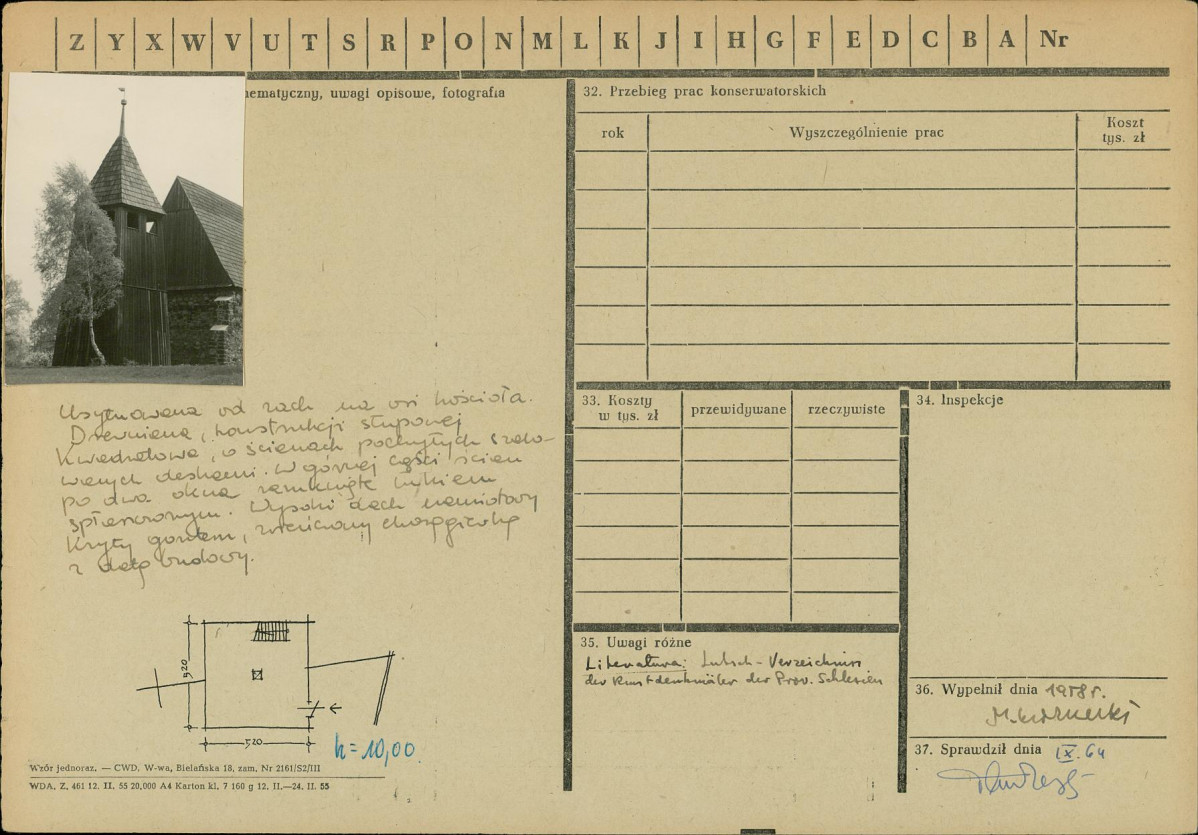 Z Y X W V U T S R P O N M L K J I H G F E D C B A Nr
ematyczny, uwagi opisowe, fotografia
Usytuowana od zach na osi kościoła.
Drewniana, konstrukcji słupowej
Kwadratowa, o ścianach pochyłych szalo-
wanych deskami. W górnej części ścian
po dwa okna zamknięte łukiem
spłaszczonym. Wysoki dach namiotowy
Kryty gontem, zwieńczony chorągiewką
z datą budowy.
5,20
520
h = 10,00
Wzór jednoraz. — CWD. W-wa, Bielańska 18, zam. Nr 2161/S2/III
WDA. Z. 461 12. II. 55 20,000 A4 Karton kl. 7 160 g 12. II.—24. II. 55
32. Przebieg prac konserwatorskich
rok Wyszczególnienie prac Koszt tys. zł
33. Koszty w tys. zł przewidywane rzeczywiste
34. Inspekcje
35. Uwagi różne
Literatura: Lutsch - Verzeichnis
der Kunstdenkmäler der Prov. Schlesien
36. Wypełnił dnia 1958 r.
37. Sprawdził dnia IX. 64